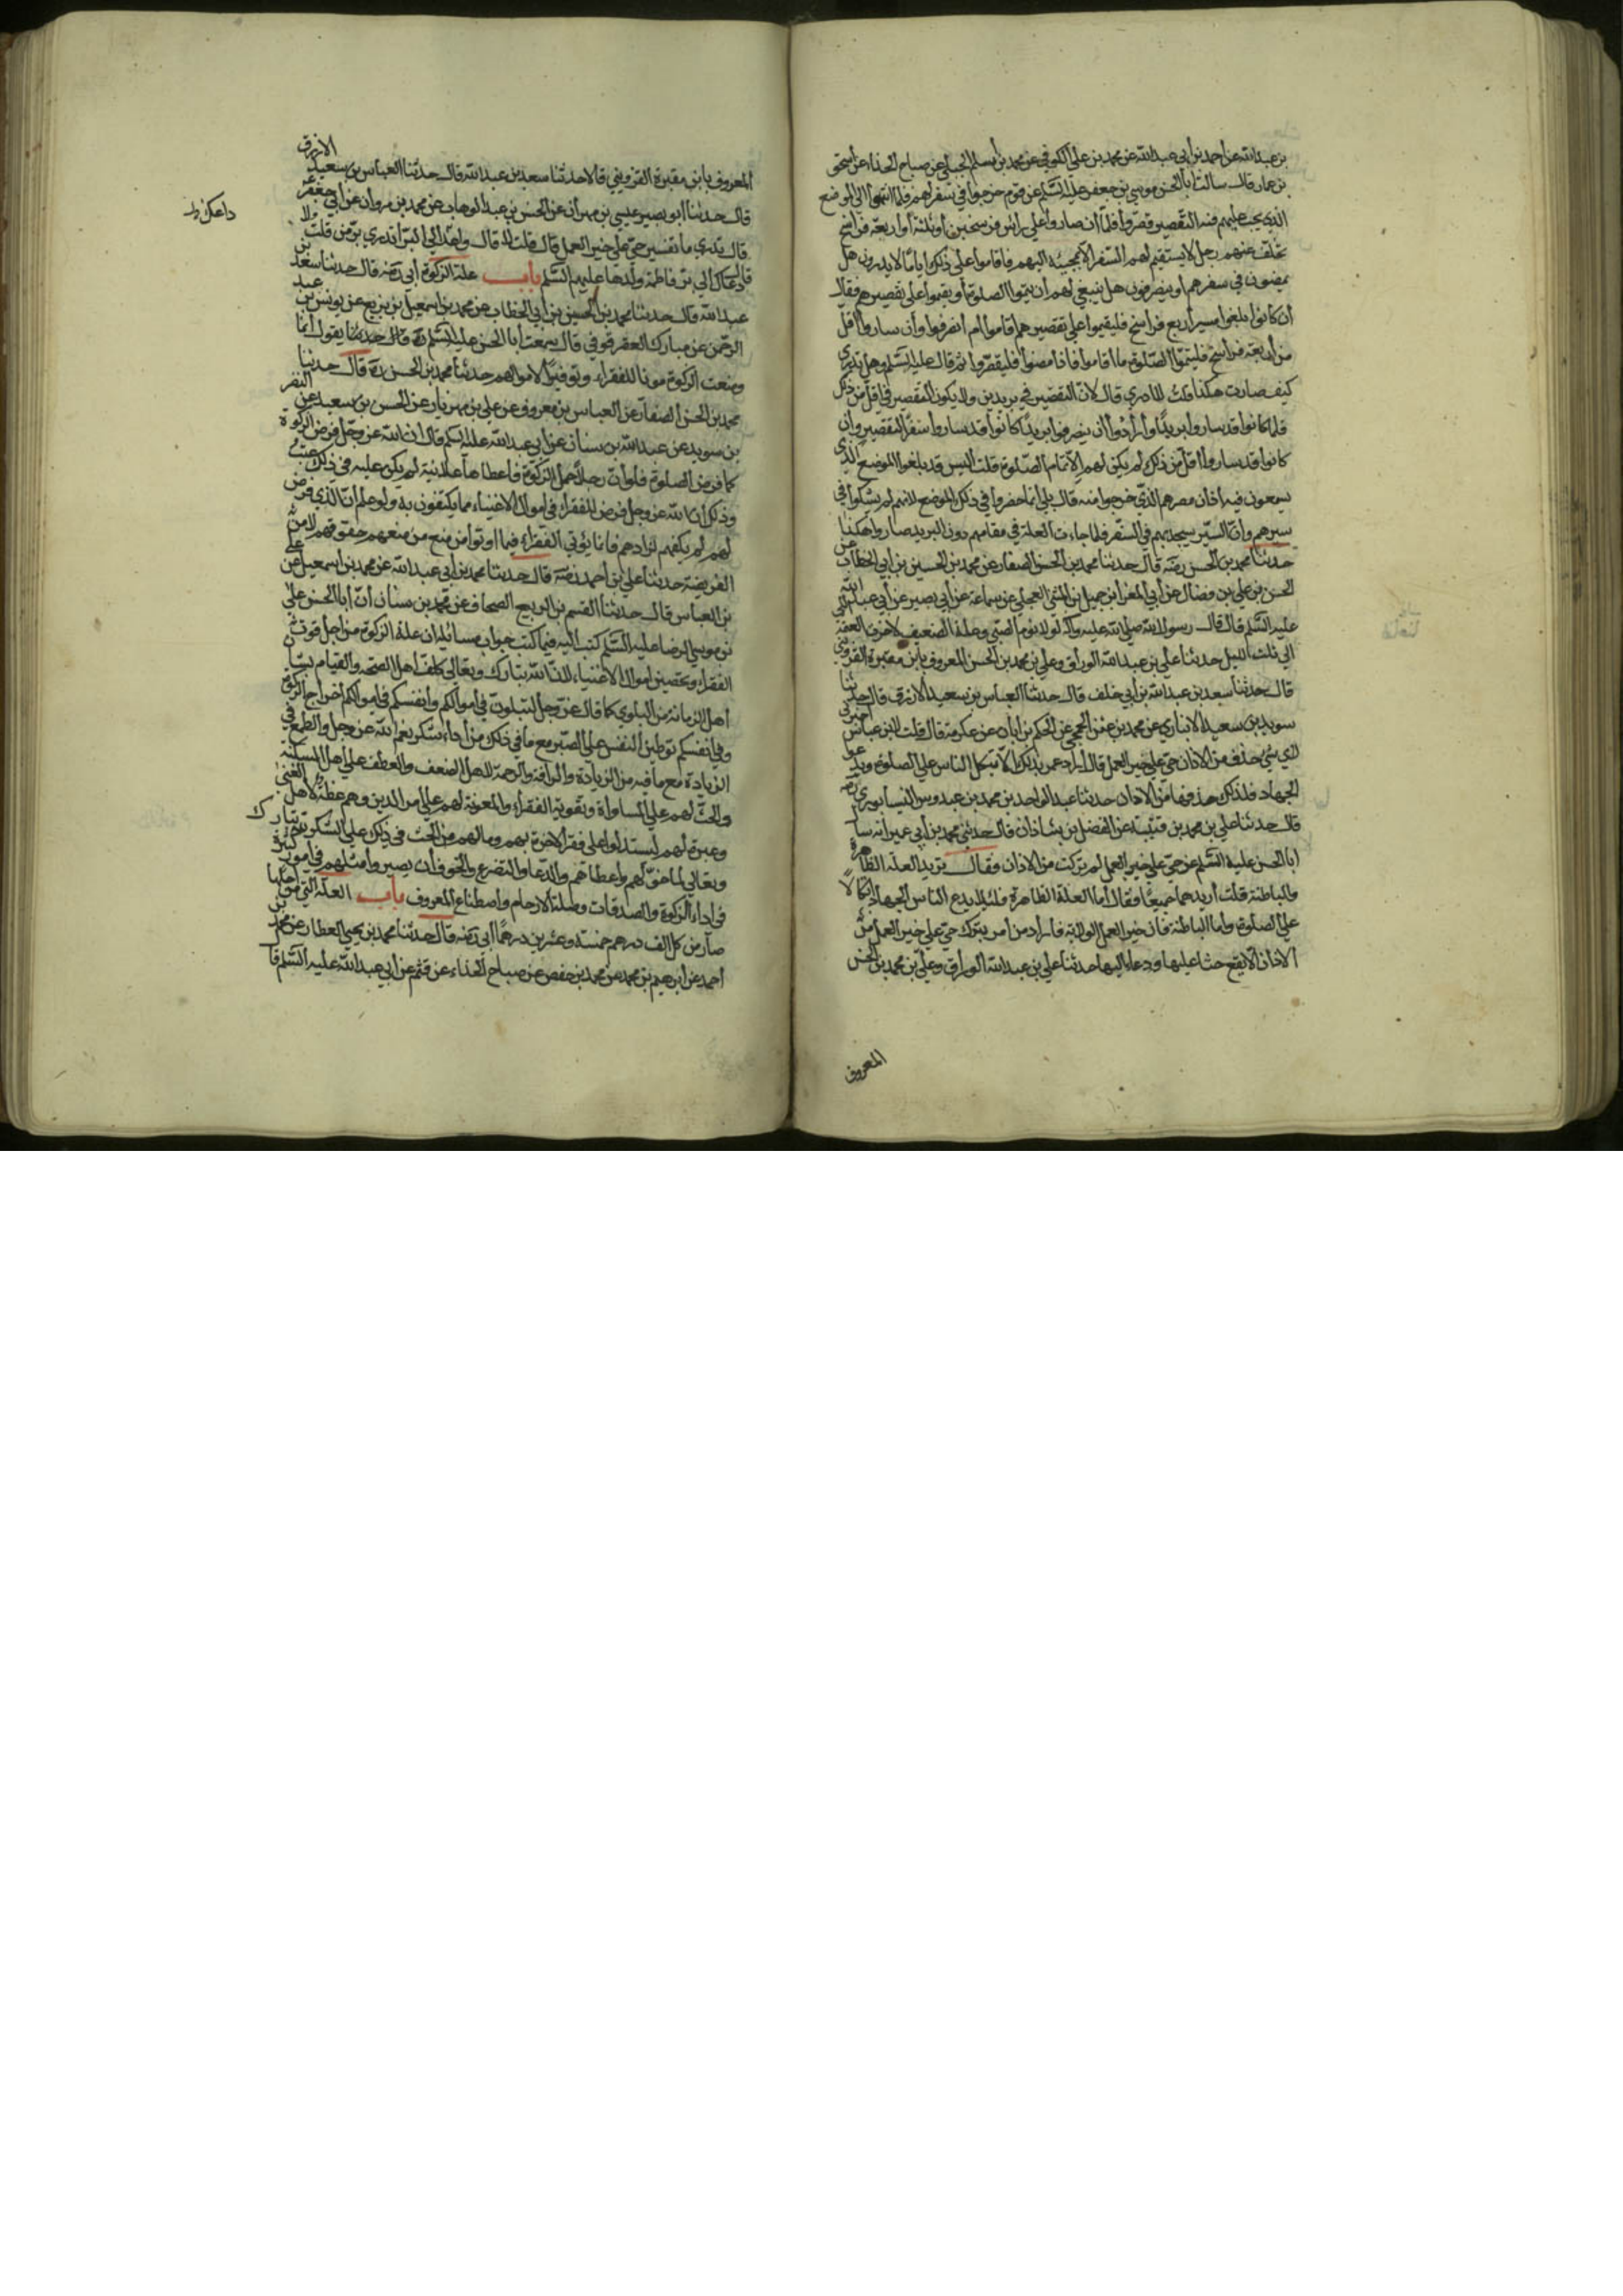 بن عبدالله عن احمد بن ابي عبدالله عن محمد بن علي الكوفي عن محمد بن اسلم الجبلي عن صباح الحذاء عن اسحق
بن عمار قال سالت ابا الحسن موسي بن جعفر عليه السلم عن قوم خرجوا في سفر لهم فلما انتهوا الي الموضع
الذي يجب عليهم فيه التقصير قصروا فلما ان صاروا علي راس فرسخين او ثلثة او اربعة فراسخ
تخلف عنهم رجل لا يستقيم لهم السفر الا بمجيئه اليهم فاقاموا علي ذلك اياما لا يدرون هل
يمضون في سفرهم او ينصرفون هل ينبغي لهم ان يتموا الصلوة او يقيموا علي تقصيرهم فقال
ان كانوا بلغوا مسير اربع فراسخ فليقيموا علي تقصيرهم اقاموا ام انصرفوا وان ساروا اقل
من اربعة فراسخ فليتموا الصلوة ما اقاموا فاذا مضوا فليقصروا ثم قال عليه السلم وهل تدري
كيف صارت هكذا قلت لا ادري قال لان التقصير في بريدين ولا يكون التقصير في اقل من ذلك
فلما كانوا قد ساروا بريدا وارادوا ان ينصرفوا بريدا كانوا قد ساروا سفر التقصير وان
كانوا قد ساروا اقل من ذلك لم يكن لهم الا تمام الصلوة قلت اليس قد بلغوا الموضع الذي
يسمعون فيه اذان مصرهم الذي خرجوا منه قال بلي انما قصروا في ذلك الموضع لانهم لم يشكوا في
سيرهم وان السير سيجد بهم في السفر فلما جاءت العلة في مقامهم دون البريد صاروا هكذا
حدثنا محمد بن الحسن رضه قال حدثنا محمد بن الحسن الصفار عن محمد بن الحسين بن ابي الخطاب عن
الحسن بن علي بن فضال عن ابي المغرا حميد بن المثني العجلي عن سماعة عن ابي بصير عن ابي عبدالله
عليه السلم قال قال رسول الله صلي الله عليه وآله لولا نوم الصبي وعلة الضعيف لاخرت العتمة
الي ثلث الليل حدثنا علي بن عبدالله الوراق وعلي بن محمد بن الحسن المعروف بابن مقبرة القزويني
قال حدثنا سعد بن عبدالله بن ابي خلف قال حدثنا العباس بن سعيد الازرق قال حدثنا
سويد بن سعيد الانباري عن محمد بن عثمن الجمحي عن الحكم بن ابان عن عكرمة قال قلت لابن عباس اخبرني
لاي شيء حذف من الاذان حي علي خير العمل قال اراد عمر بذلك الا يتكل الناس علي الصلوة ويدعوا
الجهاد فلذلك حذفها من الاذان حدثنا عبد الواحد بن محمد بن عبدوس النيسابوري رضه
قال حدثنا علي بن محمد بن قتيبة عن الفضل بن شاذان قال حدثني محمد بن ابي عمير انه سال
ابا الحسن عليه السلم عن حي علي خير العمل لم تركت من الاذان فقال تريد العلة الظاهرة
والباطنة قلت اريدهما جميعا فقال اما العلة الظاهرة فلئلا يدع الناس الجهاد اتكالا
علي الصلوة واما الباطنة فان خير العمل الولاية فاراد من امر بترك حي علي خير العمل من
الاذان الا يقع حثا عليها ودعاء اليها حدثنا علي بن عبدالله الوراق وعلي بن محمد بن الحسن
المعروف
المعروف بابن مقبرة القزويني قالا حدثنا سعد بن عبدالله قال حدثنا العباس بن سعيد الازرق
قال حدثنا ابو بصير عيسي بن مهران عن الحسن بن عبد الوهاب عن محمد بن مروان عن ابي جعفر ع
قال تدري ما تفسير حي علي خير العمل قال قلت لا قال دعاك الي البر اتدري بر من قلت لا
قال دعاك الي بر فاطمة وولدها عليهم السلم باب علة الزكوة ابي رضه قال حدثنا سعد بن
عبدالله قال حدثنا محمد بن الحسين بن ابي الخطاب عن محمد بن اسمعيل بن بزيع عن يونس بن عبد
الرحمن عن مبارك العقرقوفي قال سمعت ابا الحسن عليه السلم يقول انما
وضعت الزكوة قوتا للفقراء وتوفيرا لاموالهم حدثنا محمد بن الحسن ره قال حدثنا
محمد بن الحسن الصفار عن العباس بن معروف عن علي بن مهزيار عن الحسين بن سعيد عن النضر
بن سويد عن عبدالله بن سنان عن ابي عبدالله عليه السلم قال ان الله عز وجل فرض الزكوة
كما فرض الصلوة فلو ان رجلا حمل الزكوة فاعطاها علانية لم يكن عليه في ذلك عتب
وذلك ان الله عز وجل فرض للفقراء في اموال الاغنياء ما يكتفون به ولو علم ان الذي فرض
لهم لم يكفهم لزادهم فانما يؤتي الفقراء فيما اوتوا من منع من منعهم حقوقهم لا من
الفريضة حدثنا علي بن احمد رضه قال حدثنا محمد بن ابي عبدالله عن محمد بن اسمعيل عن علي
بن العباس قال حدثنا القسم بن الربيع الصحاف عن محمد بن سنان ان ابا الحسن علي
بن موسي الرضا عليه السلم كتب اليه فيما كتب جواب مسائله ان علة الزكوة من اجل قوت
الفقراء وتحصين اموال الاغنياء لان الله تبارك وتعالي كلف اهل الصحة والقيام بشان
اهل الزمانة من البلوي كما قال عز وجل لتبلون في اموالكم وانفسكم في اموالكم اخراج الزكوة
وفي انفسكم توطين النفس علي الصبر مع ما في ذلك من اداء شكر نعم الله عز وجل والطمع في
الزيادة مع ما فيه من الزيادة والرافة والرحمة لاهل الضعف والعطف علي اهل المسكنة
والحث لهم علي المساواة وتقوية الفقراء والمعونة لهم علي امر الدين وهم عظة لاهل الغني
وعبرة لهم ليستدلوا علي فقر الاخرة بهم وما لهم من الحث في ذلك علي الشكر لله تبارك
وتعالي لما خولهم واعطاهم والدعاء والتضرع والخوف ان يصيروا مثلهم في امور كثيرة
في اداء الزكوة والصدقات وصلة الارحام واصطناع المعروف باب العلة التي من اجلها
صار من كل الف درهم خمسة وعشرين درهما ابي رضه قال حدثنا محمد بن يحيي العطار عن محمد بن
احمد عن ابرهيم بن محمد عن محمد بن حفص عن صباح الحذاء عن قثم عن ابي عبدالله عليه السلم قا